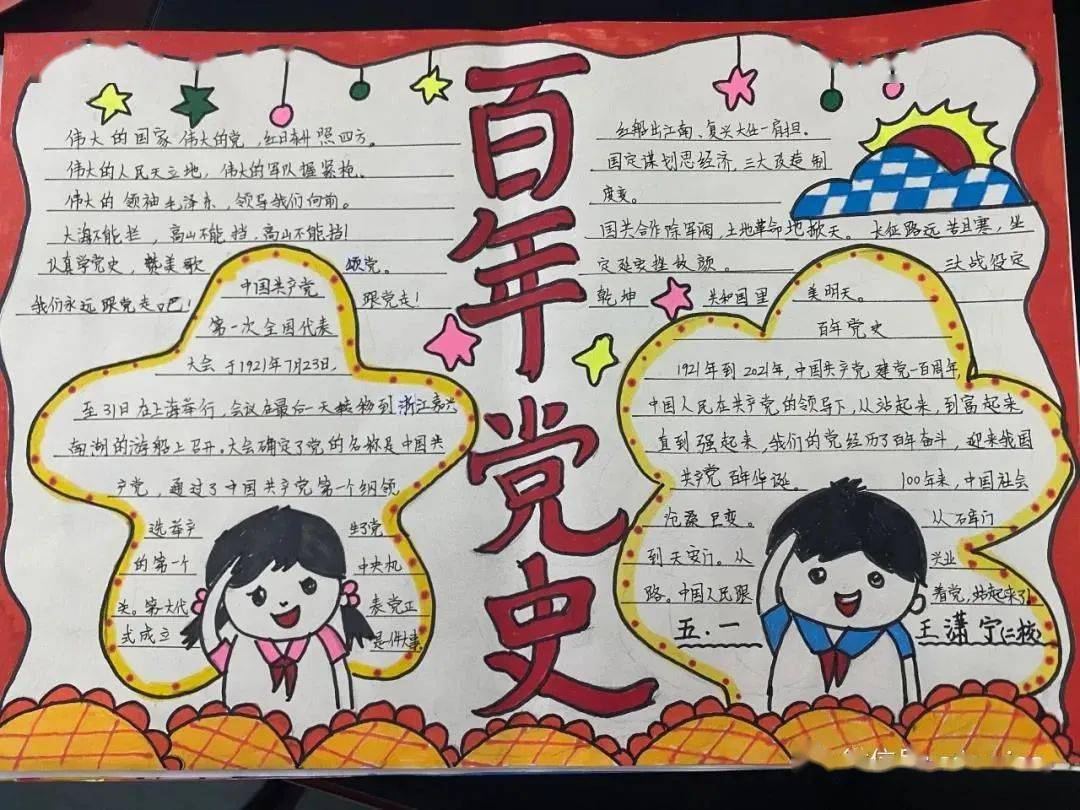 百年党史
伟大的国家 伟大的党，红日高照四方。
伟大的人民天立地，伟大的军队握紧枪。
伟大的领袖毛泽东，领导我们向前。
大海不能拦，高山不能挡，高山不能挡！
认真学党史，赞美歌 颂党。
我们永远跟党走吧！ 跟党走！
中国共产党
第一次全国代表
大会于1921年7月23日，
至31日在上海举行，会议在最后一天转移到浙江嘉兴
南湖的游船上召开。大会确定了党的名称是中国共
产党，通过了中国共产党第一个纲领
选举产 生了党
的第一个 中央机
关。 表党正
式成立
红船出江南、复兴大任一肩担。
国定谋划思经济，三大改造制
度变。
国共合作除军阀，土地革命地掀天。长征路远苦且寒，坐
定延安 三大战役定
乾坤 共和国里 美明天。
百年党史
1921年到2021年，中国共产党建党一百周年，
中国人民在共产党的领导下，从站起来，到富起来
直到强起来，我们的党经历了百年奋斗，迎来我国
共产党百年华诞。 100年来，中国社会
沧桑巨变。 从石库门
到天安门。从 兴业
路。中国人民跟 着党，站起来了！
五.一 王潇宁